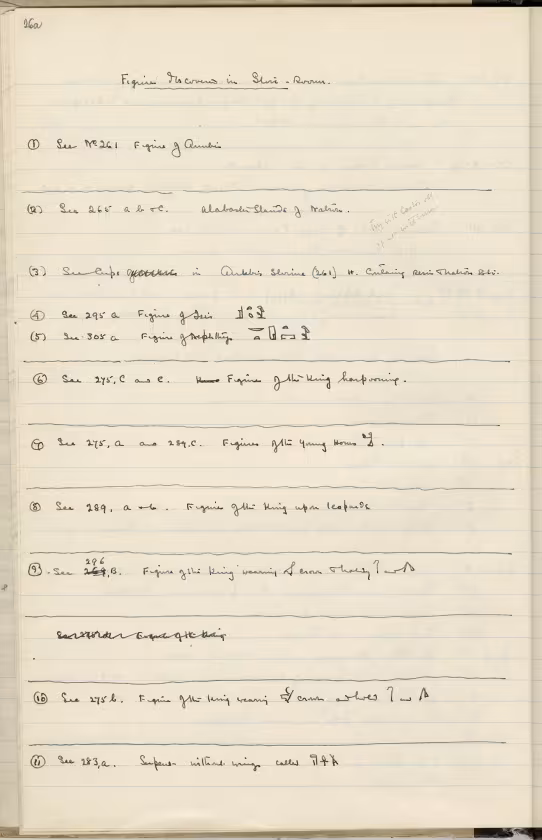 26a
Figures Recovered in Store-Room.
(1) See No 261 Figure of Anubis
(2) See 265 a b & c. Alabaster Stands of Natron.
(3) See Cups in Anubis Shrine (261) H. Containing resin Natron etc.
(4) See 295 a Figure of Isis
(5) See 305 a Figure of Nephthys
(6) See 275, C and e. Figures of the King harpooning.
(7) See 275, a and 289.C. Figures of the Young Horus
(8) See 289, a & b. Figures of the King upon leopards
(9) See 296 B. Figure of the King wearing crown & holds
See Figure of the King
(10) See 275 b. Figure of the King wearing crown and holds
(11) See 283, a. Serpent without wings called